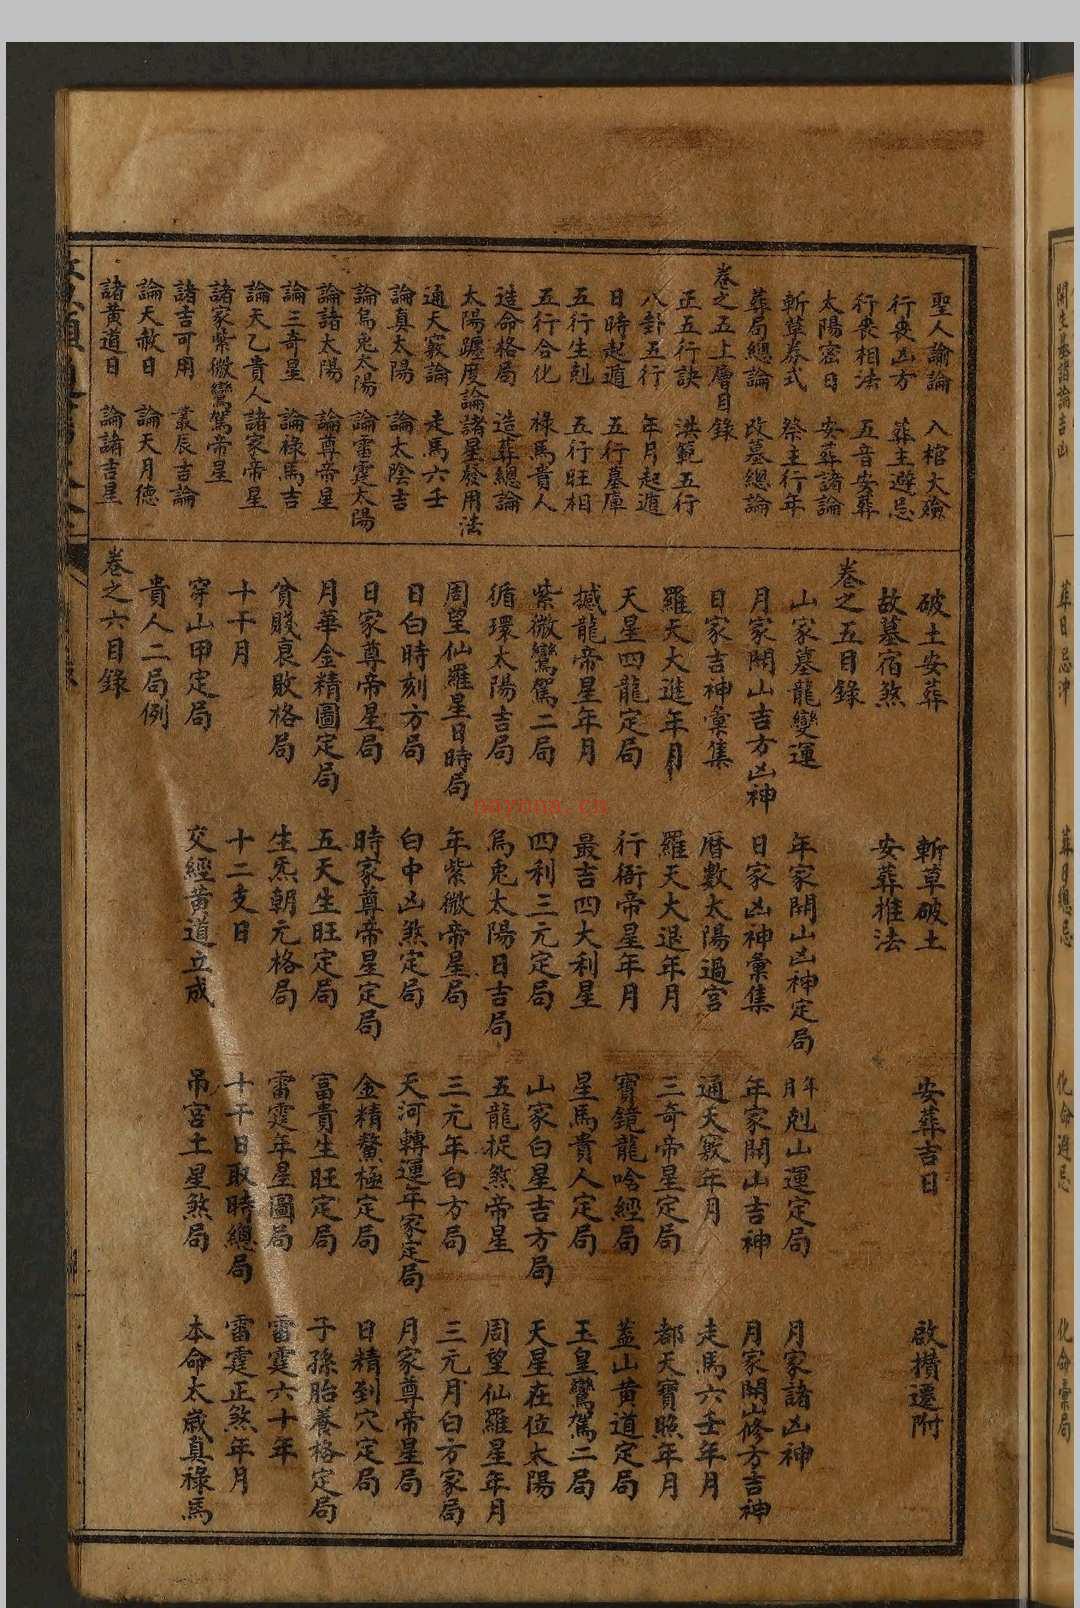 聖人諭論　入棺大殮
行喪凶方　葬主避忌
行喪相法　五音安葬
太陽密日　安葬諸論
斬草券式　祭主行年
葬局總論　改墓總論
卷之五上層目錄
正五行訣　洪範五行
八卦五行　年月起遁
日時起遁　五行墓庫
五行生剋　五行旺相
五行合化　祿馬貴人
造命格局　造葬總論
太陽躔度論　諸星發用法
通天竅論　走馬六壬
論真太陽　論太陰吉
論烏兎太陽　論雷霆太陽
論諸太陽　論尊帝星
論三奇星　論祿馬吉
論天乙貴人　諸家帝星
諸家紫微鸞駕帝星
諸吉可用　叢辰吉論
論天赦日　論天月德
諸黃道日　論諸吉星
破土安葬　斬草破土　安葬吉日　啟攢遷附
故墓宿煞　安葬推法
卷之五目錄
山家墓龍變運　年家開山凶神定局　年月剋山運定局　月家諸凶神
月家開山吉方凶神　日家凶神彙集　年家開山吉神　月家開山修方吉神
日家吉神彙集　曆數太陽過宮　通天竅年月　走馬六壬年月
羅天大進年月　羅天大退年月　三奇帝星定局　都天寶照年月
天星四龍定局　行衙帝星年月　寶鏡龍唅經局　蓋山黃道定局
撼龍帝星年月　最吉四大利星　星馬貴人定局　玉皇鸞駕二局
紫微鸞駕二局　四利三元定局　山家白星吉方局　天星在位太陽
循環太陽吉局　烏兎太陽日吉局　五龍捉煞帝星　周望仙羅星年月
周望仙羅星日時局　年紫微帝星局　三元年白方局　三元月白方家局
日白時刻方局　白中凶煞定局　天河轉運年家定局　月家尊帝星局
日家尊帝星局　時家尊帝星定局　金精鰲極定局　日精到穴定局
月華金精圖定局　五天生旺定局　富貴生旺定局　子孫胎養格定局
貧賤衰敗格局　生炁朝元格局　雷霆年星圖局　雷霆六十年
十干月　十二支日　十干日取時總局　雷霆正煞年月
穿山甲定局　交經黃道立成　吊宮土星煞局　本命太歲真祿馬
貴人二局例
卷之六目錄
nayona.cn